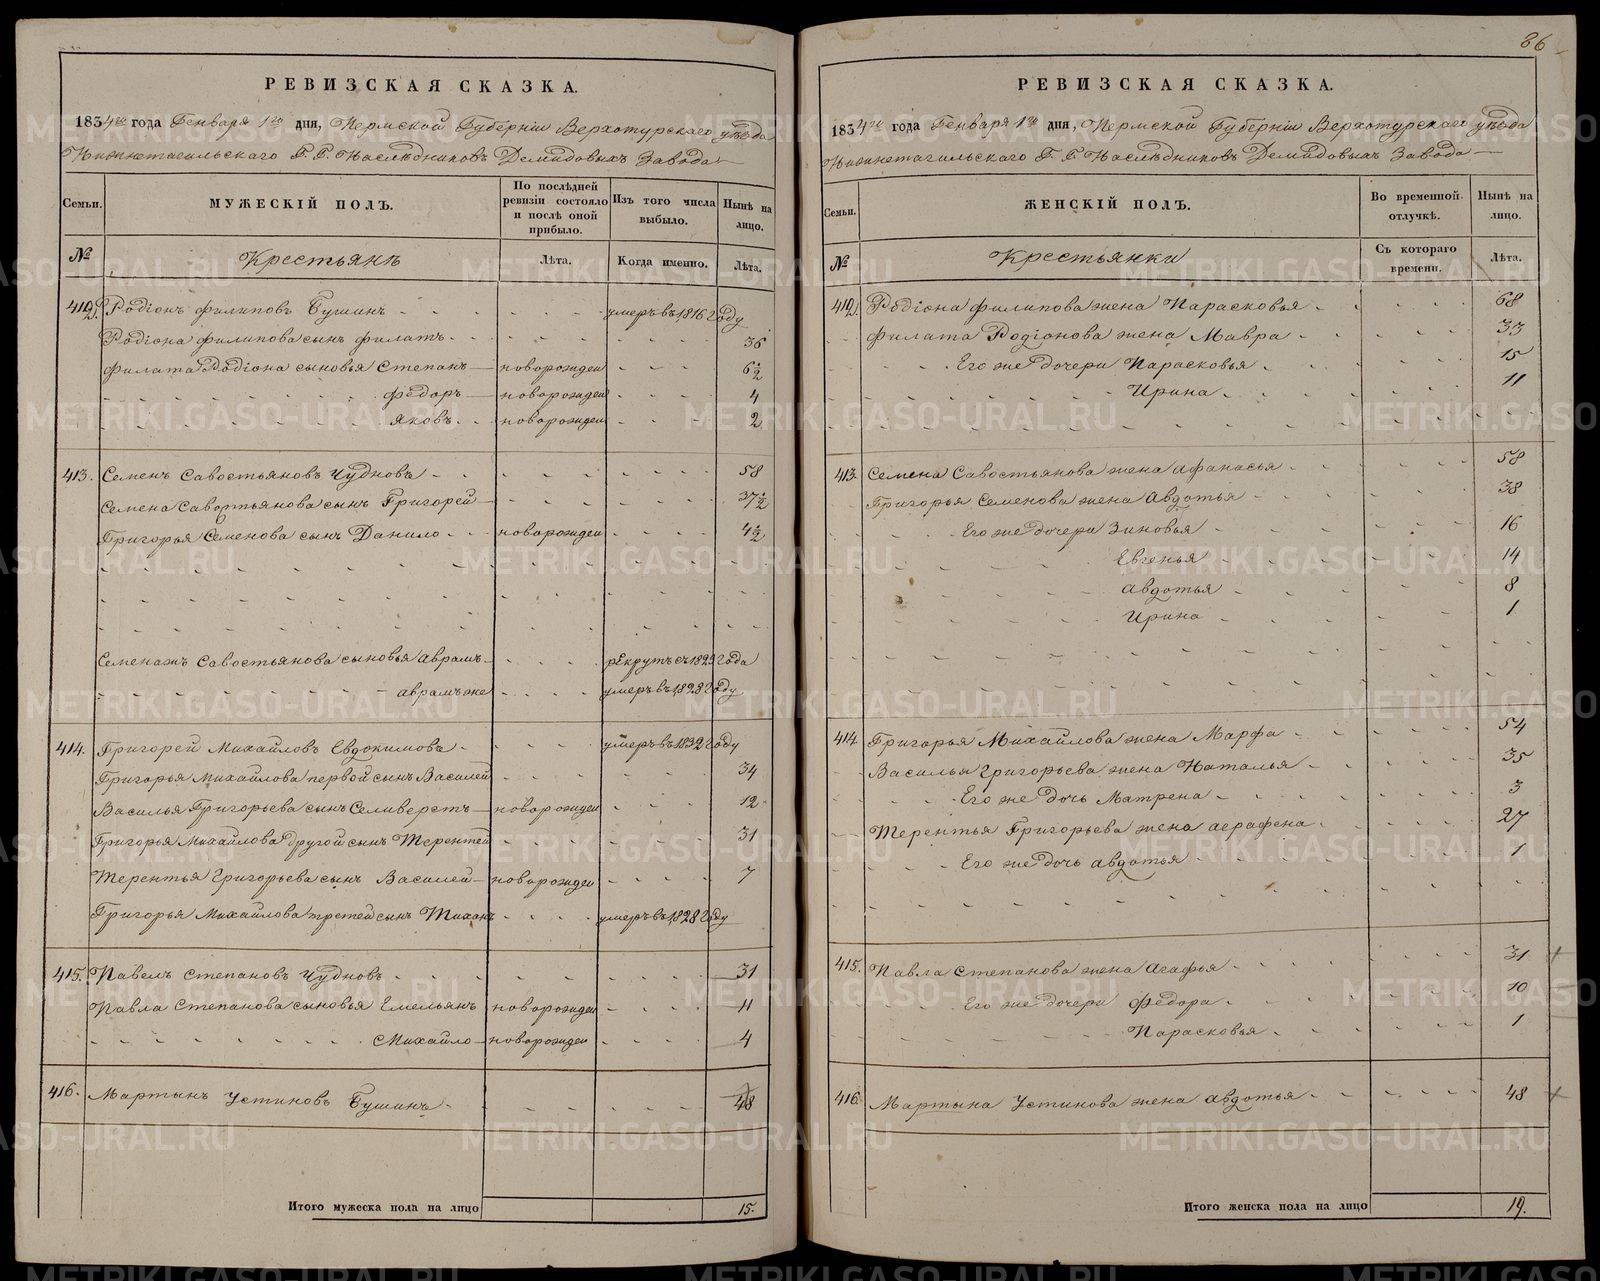 РЕВИЗСКАЯ СКАЗКА.
1834го года Генваря 1го дня, Пермской Губерніи Верхотурскаго уѣзда
Нижнетагильскаго Г. Г. Наслѣдниковъ Демидовыхъ Завода
Семьи. МУЖЕСКІЙ ПОЛЪ. По послѣдней ревизіи состояло и послѣ оной прибыло. Изъ того числа выбыло. Нынѣ на лицо.
№ Крестьянъ Лѣта. Когда именно. Лѣта.
412. Родіонъ Филиповъ Бушинъ умеръ въ 1816 Году
Родіона Филипова сынъ Филатъ 36
Филата Родіона сыновья Степанъ новорожден 6½
Федоръ новорожден 4
Яковъ новорожден 2
413. Семенъ Савостьяновъ Чудновъ 58
Семена Савостьянова сынъ Григорей 37½
Григорья Семенова сынъ Данило новорожден 4½
Семена жъ Савостьянова сыновья Аврамъ рекрутъ съ 1829 Года
Аврамъ же умеръ въ 1828 Году
414. Григорей Михайловъ Евдокимова умеръ въ 1832 Году
Григорья Михайлова первой сынъ Василей 34
Василья Григорьева сынъ Селиверстъ новорожден 12
Григорья Михайлова другой сынъ Терентей 31
Терентья Григорьева сынъ Василей новорожден 7
Григорья Михайлова третей сынъ Тихонъ умеръ въ 1828 Году
415. Павелъ Степановъ Чудновъ 31
Павла Степанова сыновья Емельянъ новорожден 11
Михайло новорожден 4
416. Мартынъ Устиновъ Бушинъ 48
Итого мужеска пола на лицо 15.
86
РЕВИЗСКАЯ СКАЗКА.
1834го года Генваря 1го дня, Пермской Губерніи Верхотурскаго уѣзда
Нижнетагильскаго Г. Г. Наслѣдниковъ Демидовыхъ Завода
Семьи. ЖЕНСКІЙ ПОЛЪ. Во временной отлучкѣ. Нынѣ на лицо.
№ Крестьянки Съ котораго времени. Лѣта.
412. Родіона Филипова жена Парасковья 68
Филата Родіонова жена Мавра 33
Его же дочери Парасковья 15
Ирина 11
413. Семена Савостьянова жена Афанасья 58
Григорья Семенова жена Авдотья 38
Его же дочери Зиновья 16
Евгенья 14
Авдотья 8
Ирина 1
414. Григорья Михайлова жена Марфа 54
Василья Григорьева жена Наталья 35
Его же дочь Матрена 3
Терентья Григорьева жена Аграфена 27
Его же дочь Авдотья 1
415. Павла Степанова жена Агафья 31
Его же дочери Федора 10
Парасковья 1
416. Мартына Устинова жена Авдотья 48
Итого женска пола на лицо 19.
METRIKI.GASO-URAL.RU